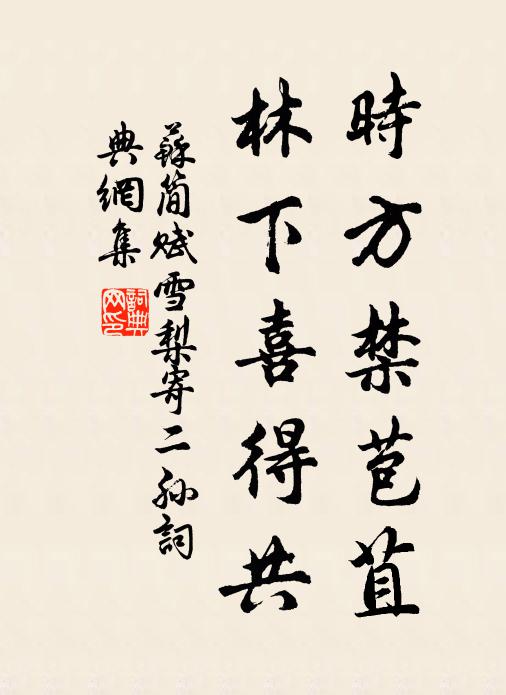 時方禁苞苴
林下喜得共
蘇簡賦雪梨寄二孫詞
典網集
詞典網印